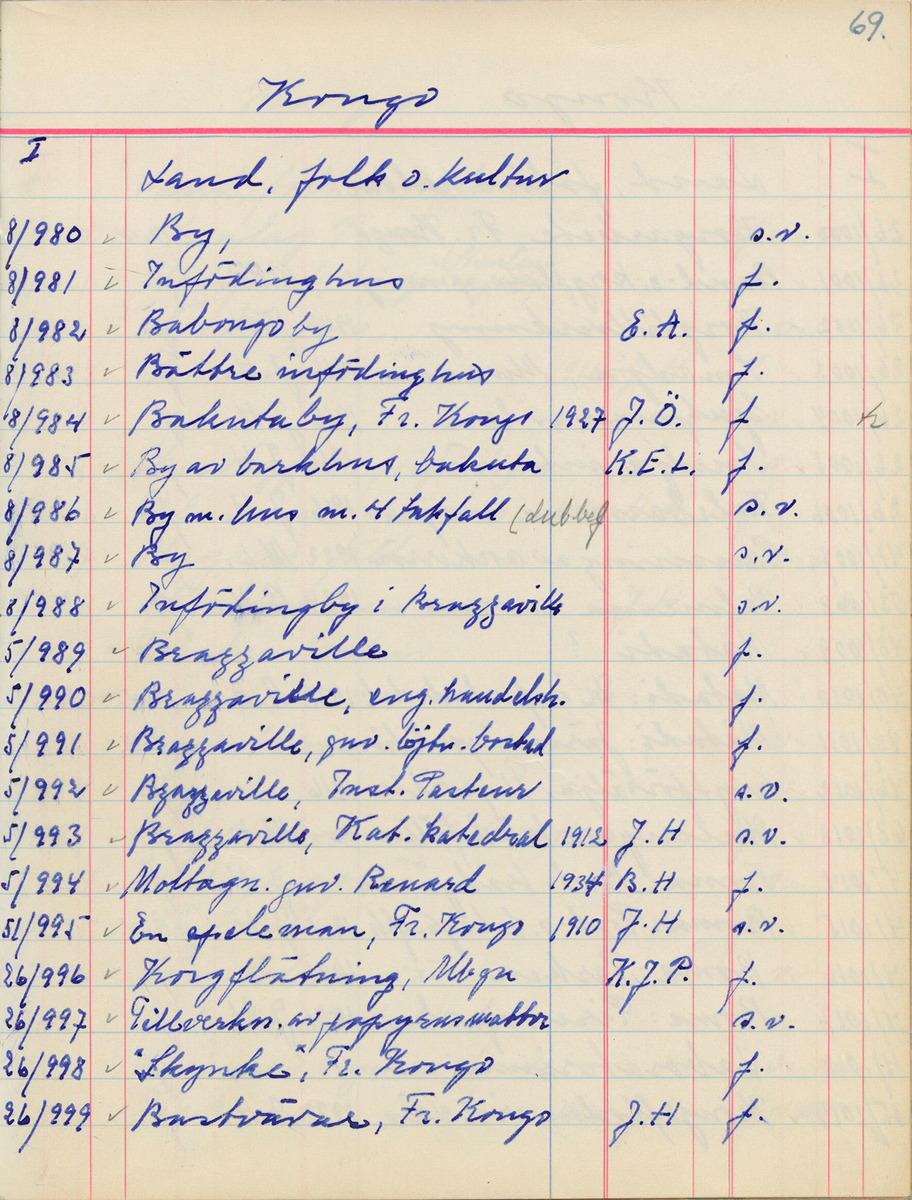 69.
Kongo
I
Land, folk o. kultur
8/980 ✓ By, s.v.
8/981 Infödinghus f.
8/982 ✓ Babongoby E. A. f.
8/983 ✓ Bättre infödinghus f.
8/984 ✓ Bakutaby, Fr. Kongo 1927 J. Ö. f
8/985 ✓ By av barkhus, bakuta K.E.L. f.
8/986 ✓ By m. hus m. 4 takfall (dubbel) s.v.
8/987 ✓ By s.v.
8/988 ✓ Infödingby i Brazzaville s.v.
5/989 ✓ Brazzaville f.
5/990 ✓ Brazzaville, eng. handelsh. f.
5/991 ✓ Brazzaville, guv. löjtn. bostad f.
5/992 ✓ Brazzaville, Inst. Pasteur s.v.
5/993 ✓ Brazzaville, Kat. katedral 1912 J. H s.v.
5/994 ✓ Mottagn. guv. Renard 1934 B. H f.
51/995 ✓ En speleman, Fr. Kongo 1910 J. H s.v.
26/996 ✓ Korgflätning, K. J. P. f.
26/997 ✓ Tillverkn. av papyrusmattor s.v.
26/998 ✓ "Skynke", Fr. Kongo f.
26/999 ✓ Bastvävar, Fr. Kongo J. H f.